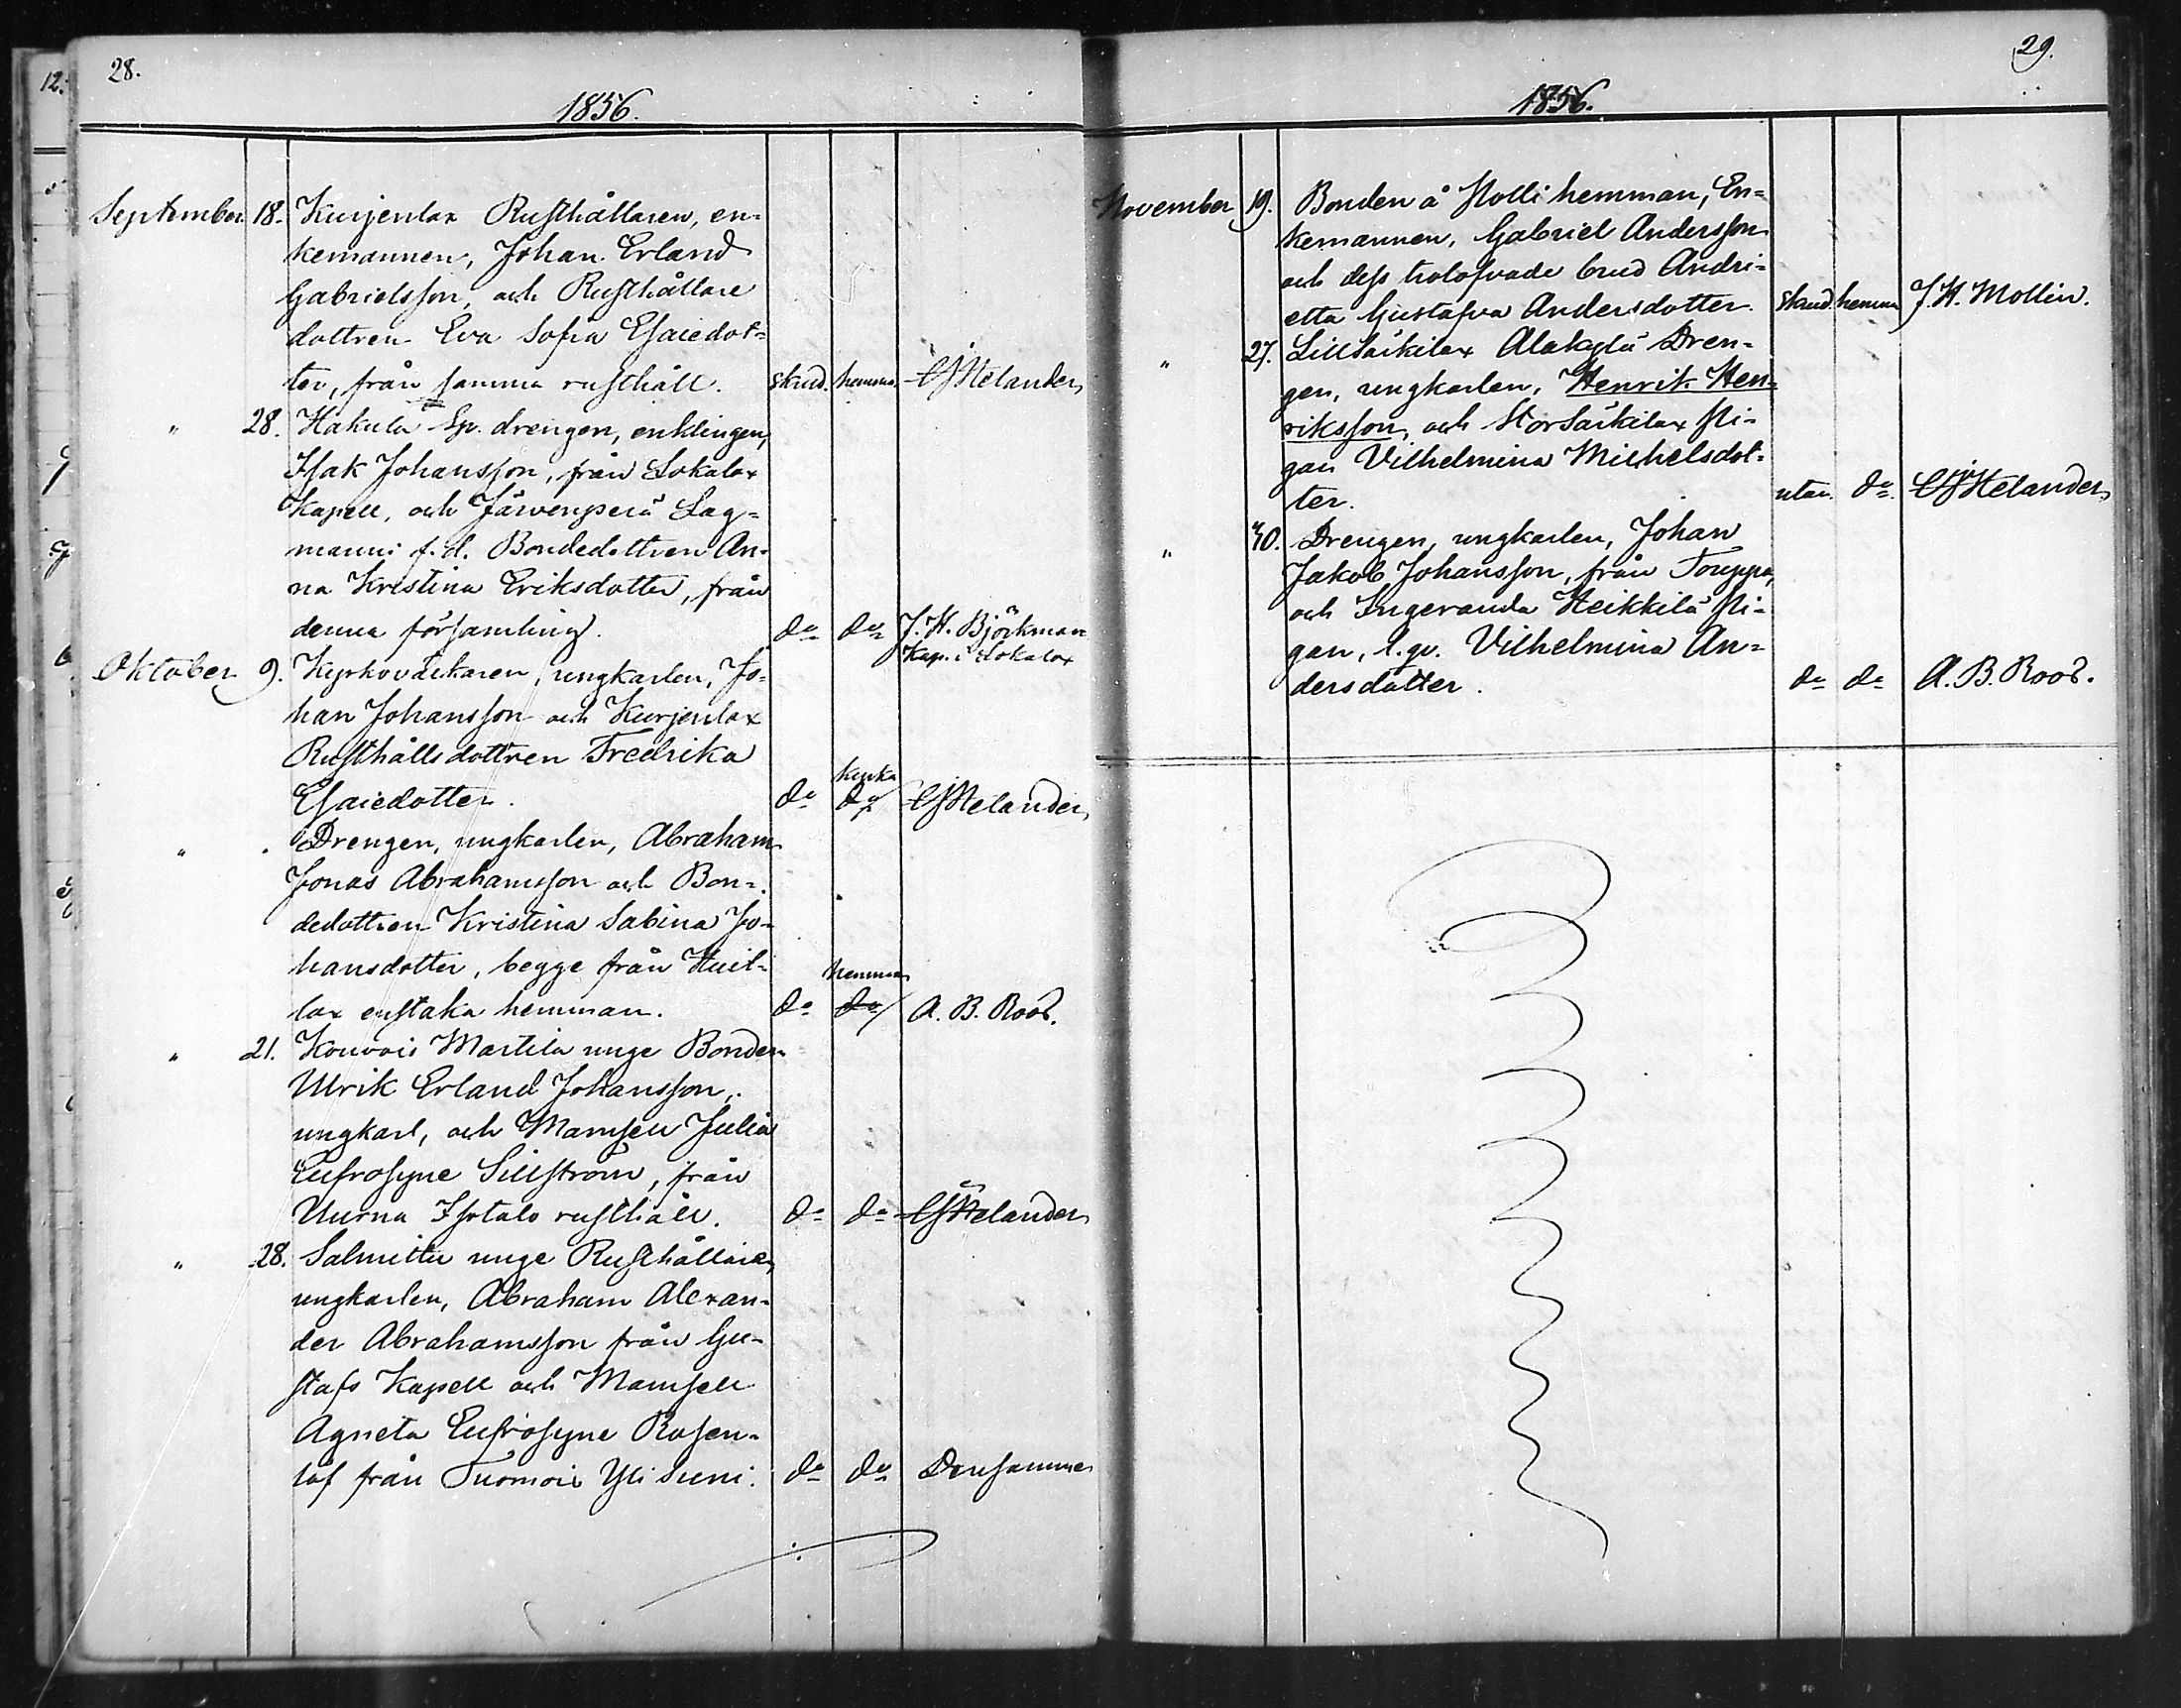 28.
1856.
September 18. Kurjenlax Rusthållaren, en-
kemannen, Johan Erland
Gabrielsson, och Rusthållare
dottren Eva Sofia Esaiedot-
ter, från samma rusthåll. skrud. hemma. CJHelander
" 28. Hakula Sp. drengen, enklingen,
Isak Johansson, från Lokalax
Kapell, och Järvenperä Lag-
manni f.d. Bondedottren An-
na Kristina Eriksdotter, från
denna församling. do do J. H. Björkman
Kap. i Lokalax
Oktober 9. Kyrkovaktaren, ungkarlen, Jo-
han Johansson och Kurjenlax
Rusthållsdottren Fredrika
kyrka
Esaiedotter. do do CJHelander
" . Drengen, ungkarlen, Abraham
Jonas Abrahamsson och Bon-
dedottren Kristina Sabina Jo-
hansdotter, begge från Huil-
hemma
lax enstaka hemman. do do A. B. Roos.
" 21. Kouvois Martila unge Bonden
Ulrik Erland Johansson,
ungkarl, och Mamsell Julia
Eufrosyne Sillström, från
Uurna Isotalo rusthåll. do do CJHelander
" 28. Salmittu unge Rusthållare,
ungkarlen, Abraham Alexan-
der Abrahamsson från Gu-
stafs Kapell och Mamsell
Agneta Eufrosyne Rosen-
löf från Tuomois Yli Suni. do do Densamme
29.
1856.
November 19. Bonden å Holli hemman, En-
kemannen, Gabriel Andersson
och dess trolofvade brud Andri-
etta Gustafva Andersdotter. skrud. hemma J. H. Mollin.
" 27. Lillsäikilax Alakylä Dren-
gen, ungkarlen, Henrik Hen-
riksson, och Storsäikilax Pi-
gan Vilhelmina Michelsdot-
ter. utan. do CJHelander
" 30. Drengen, ungkarlen, Johan
Jakob Johansson, från Touppa,
och Ingeranda Heikkilä Pi-
gan, l.qv. Vilhelmina An-
dersdotter. do do A. B. Roos.